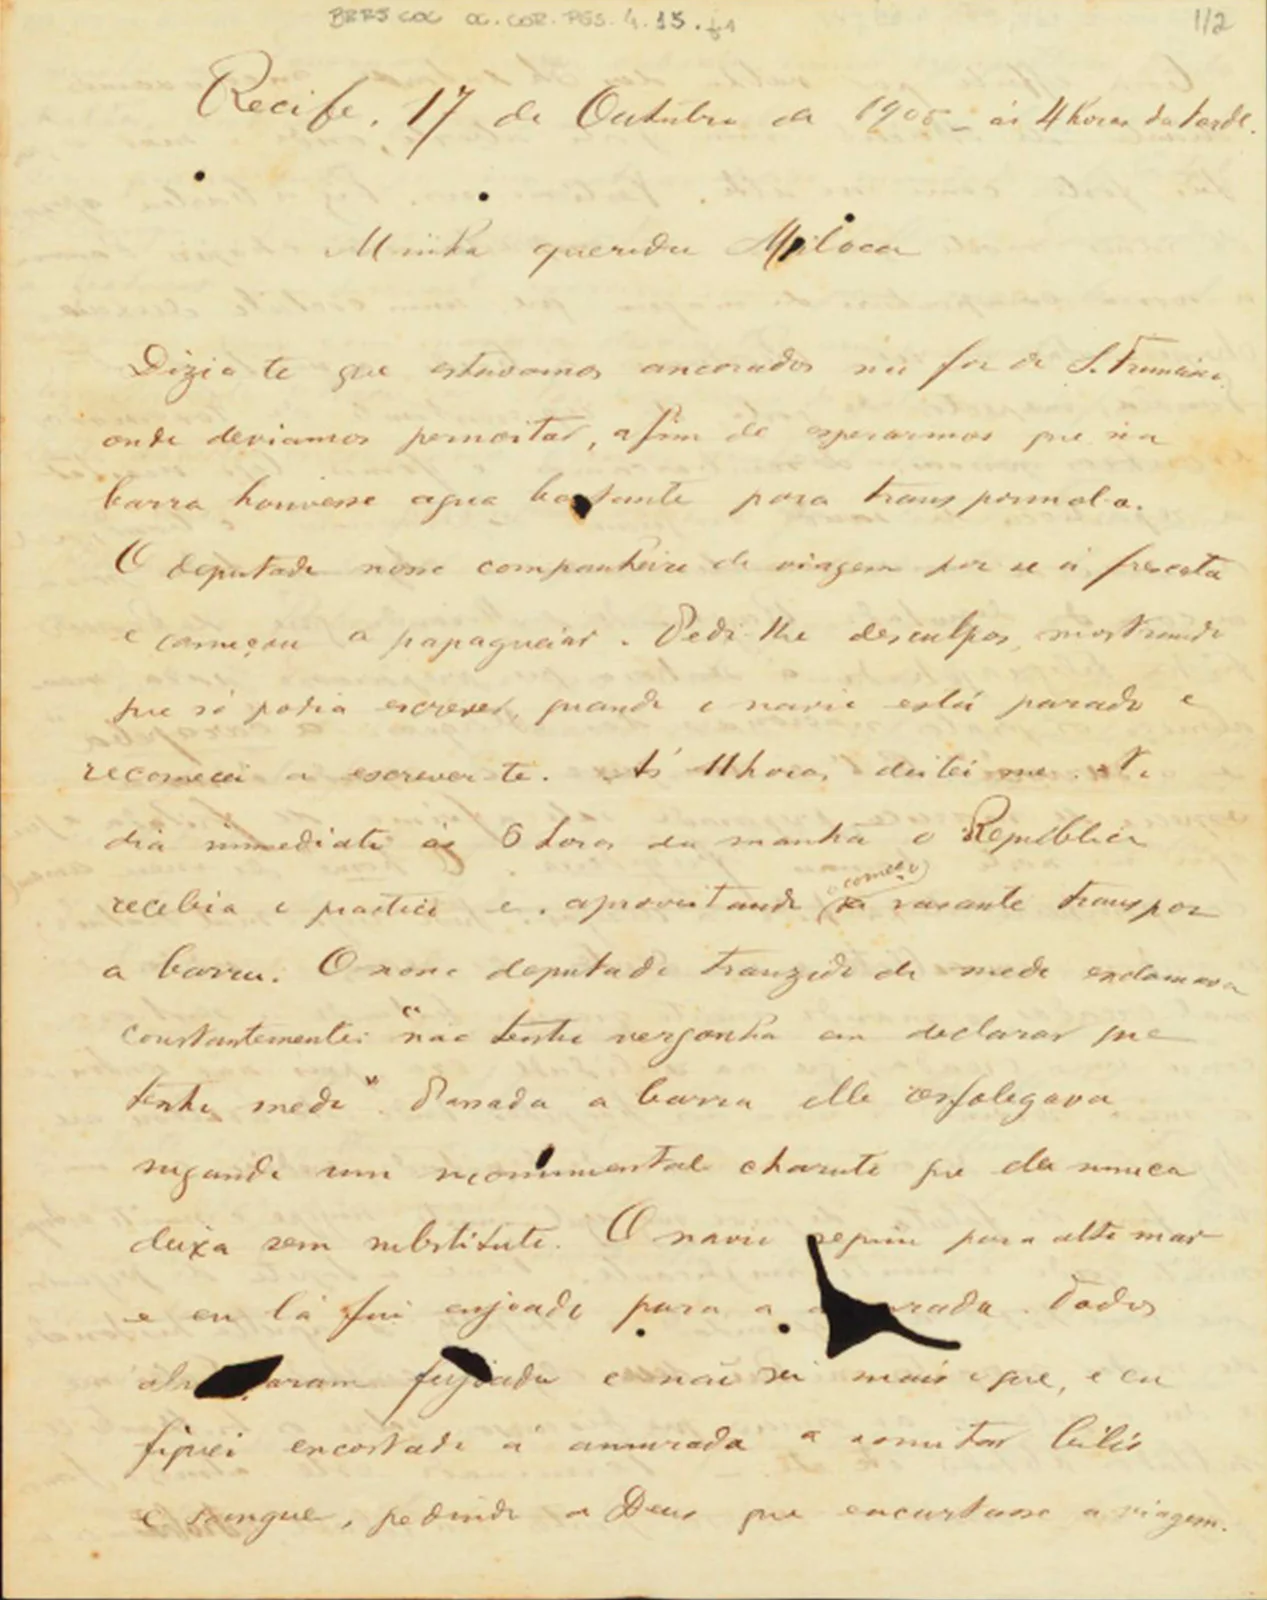 BRRJ COC OC.COR.PES.4.15.f1
1/2
Recife, 17 de Outubro de 1905 - ás 4 horas da tarde.
Minha querida Miloca
Dizia te que estavamos ancorados na foz do S. Francisco,
onde deviamos pernoitar, afim de esperarmos que na
barra houvesse agua bastante para transpormol-a.
O deputado nosso companheiro de viagem poz se á frescata
e começou a papaguear. Pedi lhe desculpas, mostrando
que só podia escrever, quando o navio está parado e
recomecei a escrever te. Ás 11 horas, deitei me. No
dia immediato ás 6 horas da manhã o Republica
recebia o pratico e, aproveitando
o começo
da vasante transpoz
a barra. O nosso deputado tranzido de medo exclamava
constantemente: "não tenho vergonha em declarar que
tenho medo". Passada a barra elle resfolegava
sugando um monumental charuto que elle nunca
deixa sem substituto. O navio seguiu para alto mar
e eu lá fui enjoado para a amurada. Todos
almoçaram feijoada e não sei mais o que, e eu
fiquei encostado á amurada a vomitar bilis
e sangue, pedindo a Deus que encurtasse a viagem.